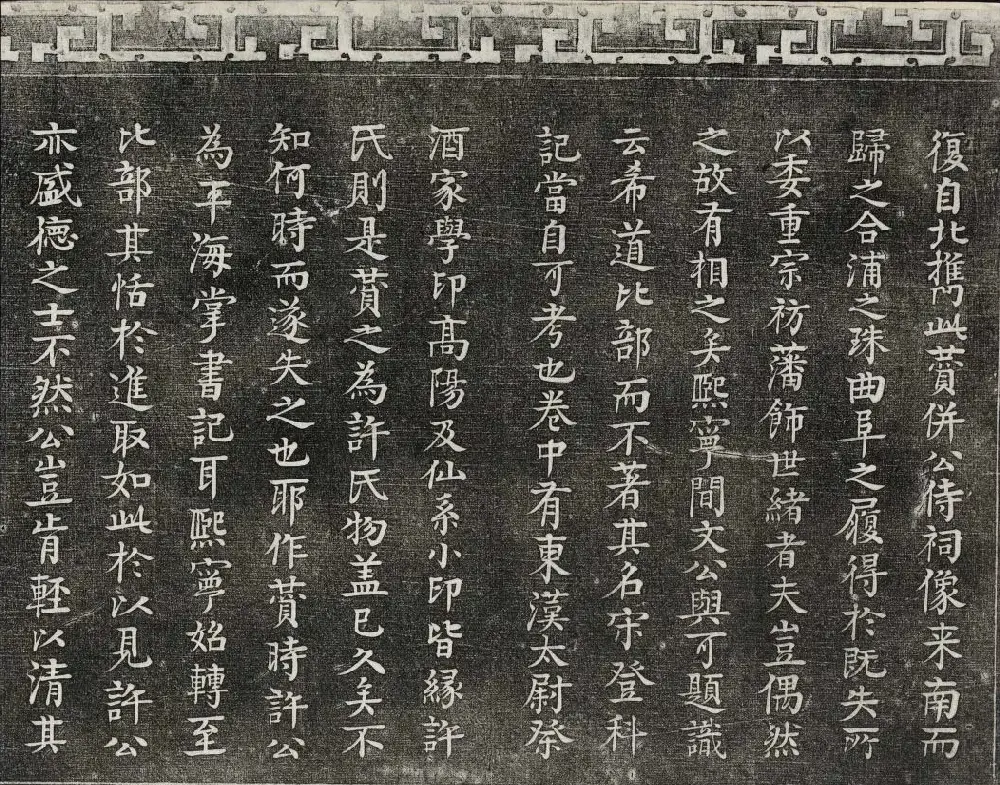 復自北携此賛併公侍祠像来南而
歸之合浦之珠曲阜之履得於既失所
以委重宗祊藩飾世緒者夫豈偶然
之故有相之矣熙寧間文公與可題識
云希道比部而不著其名宋登科
記當自可考也卷中有東漢太尉祭
酒家學印高陽及仙系小印皆縁許
氏則是賛之為許氏物盖已久矣不
知何時而遂失之也耶作賛時許公
為平海掌書記耳熙寧始轉至
比部其恬於進取如此於以見許公
亦盛徳之士不然公豈肯輕以清其